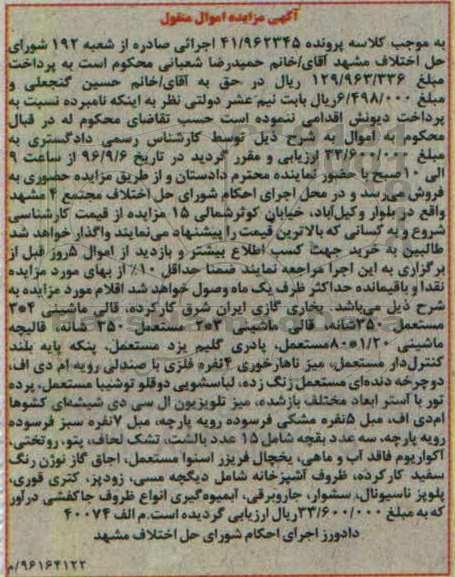 آگهی مزایده اموال منقول
به موجب کلاسه پرونده ۴۱/۹۶۲۳۴۵ اجرائی صادره از شعبه ۱۹۲ شورای
حل اختلاف مشهد آقای/خانم حمیدرضا شعبانی محکوم است به پرداخت
مبلغ ۱۲۹/۹۶۳/۳۳۶ ریال در حق به آقای/خانم حسین گنجعلی و
مبلغ ۶/۴۹۸/۰۰۰ریال بابت نیم عشر دولتی نظر به اینکه نامبرده نسبت به
پرداخت دیونش اقدامی ننموده است حسب تقاضای محکوم له در قبال
محکوم به اموال به شرح ذیل توسط کارشناس رسمی دادگستری به
مبلغ ۳۳/۶۰۰/۰۰۰ ارزیابی و مقرر گردید در تاریخ ۹۶/۹/۶ از ساعت ۹
الی ۱۰صبح با حضور نماینده محترم دادستان و از طریق مزایده حضوری به
فروش می‌رسد و در محل اجرای احکام شورای حل اختلاف مجتمع ۴ مشهد
واقع در بلوار وکیل‌آباد، خیابان کوثرشمالی ۱۵ مزایده از قیمت کارشناسی
شروع و به کسانی که بالاترین قیمت را پیشنهاد می‌نمایند واگذار خواهد شد
طالبین به خرید جهت کسب اطلاع بیشتر و بازدید از اموال ۵روز قبل از
برگزاری به این اجرا مراجعه نمایند ضمنا حداقل ۱۰٪ از بهای مورد مزایده
نقدا و باقیمانده حداکثر ظرف یک ماه وصول خواهد شد اقلام مورد مزایده به
شرح ذیل می‌باشد. بخاری گازی ایران شرق کارکرده، قالی ماشینی ۴*۳
مستعمل ۳۵۰شانه، قالی ماشینی ۳*۲ مستعمل ۳۵۰ شانه، قالیچه
ماشینی ۱/۲۰*۸۰مستعمل، پادری گلیم یزد مستعمل، پنکه پایه بلند
کنترل‌دار مستعمل، میز ناهارخوری ۴نفره فلزی با صندلی رویه ام دی اف،
دوچرخه دنده‌ای مستعمل زنگ زده، لباسشویی دوقلو توشیبا مستعمل، پرده
تور با آستر ابعاد مختلف بازشده، میز تلویزیون ال سی دی شیشه‌ای کشوها
ام‌دی اف، مبل ۵نفره مشکی فرسوده رویه پارچه، مبل ۷نفره سبز فرسوده
رویه پارچه، سه عدد بقچه شامل ۱۵ عدد بالشت، تشک لحاف، پتو، روتختی،
آکواریوم فاقد آب و ماهی، یخچال فریزر اسنوا مستعمل، اجاق گاز نوزن رنگ
سفید کارکرده، ظروف آشپزخانه شامل دیگچه مسی، زودپز، کتری قوری،
پلوپز ناسیونال، سشوار، جاروبرقی، آبمیوه‌گیری انواع ظروف جاکفشی درآور
که به مبلغ ۳۳/۶۰۰/۰۰۰ریال ارزیابی گردیده است.م الف ۴۰۰۷۴
دادورز اجرای احکام شورای حل اختلاف مشهد
۹۶۱۶۴۱۲۲/م